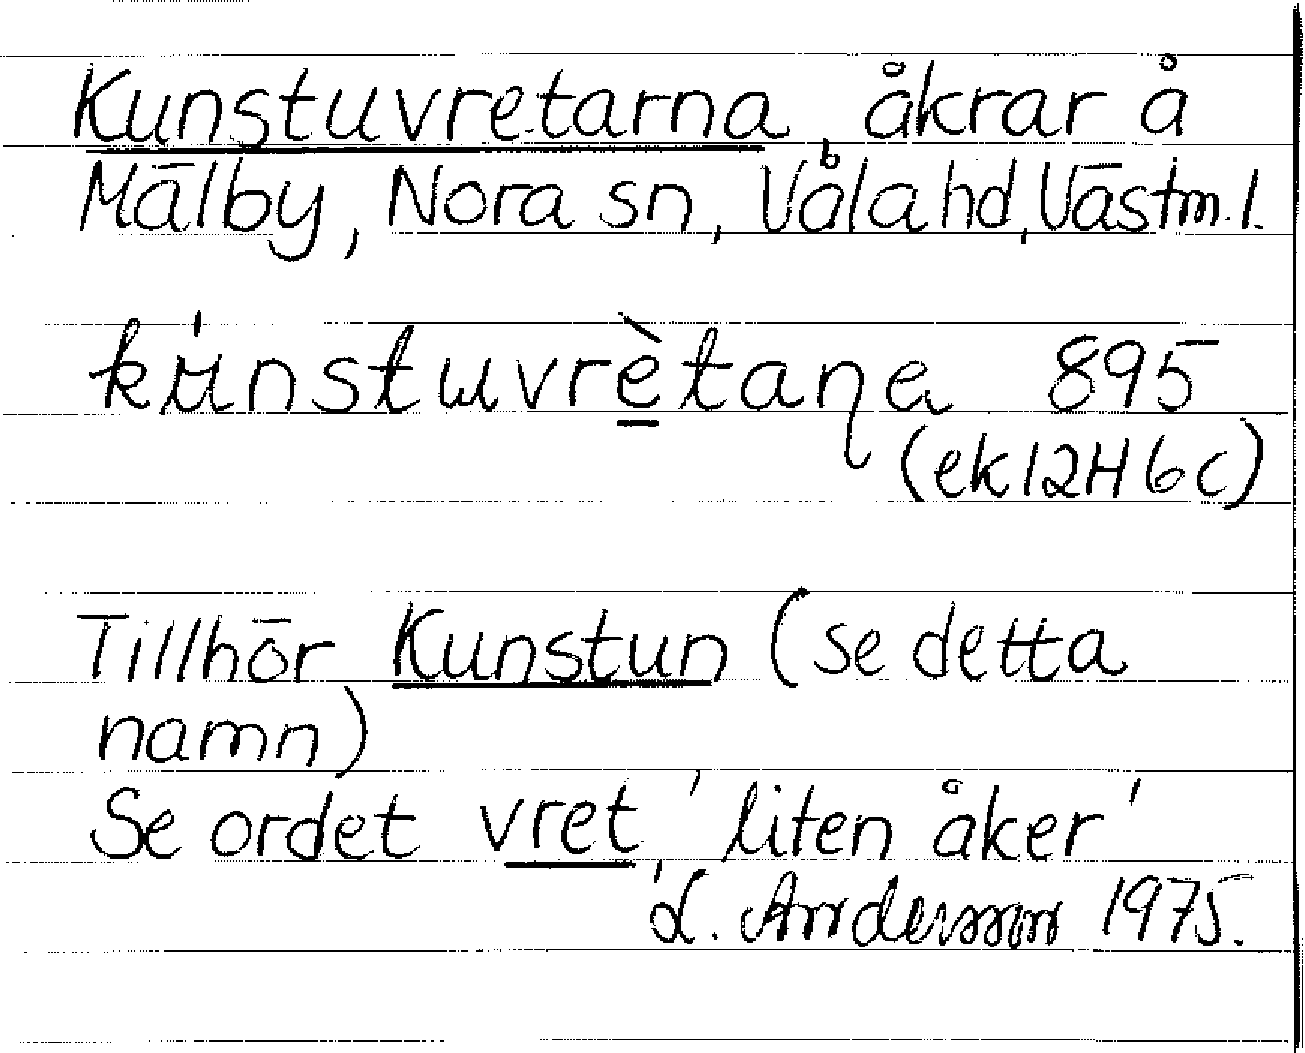 Kunstuvretarna, åkrar å
Mälby, Nora sn, Våla hd, Västm. l.
kúnstuvrètaṇa 895
(ek 12H 6c)
Tillhör Kunstun (se detta
namn)
Se ordet vret, 'liten åker'
L. Andersson 1975.